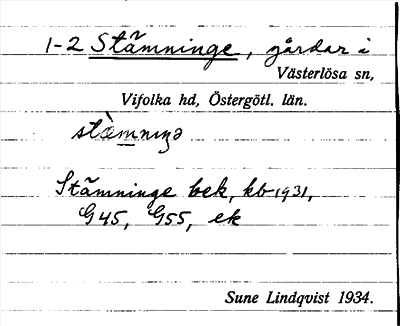 1-2 Stämninge, gårdar i
Västerlösa sn,
Vifolka hd, Östergötl. län.
Stämninge bek, kb 1931,
G45, G55, ek
Sune Lindqvist 1934.